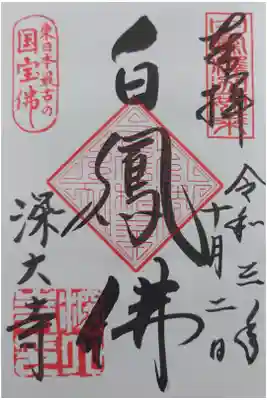 奉拝
令和三年
十月二日
白鳳佛
東日本最古の
国宝佛
深大寺